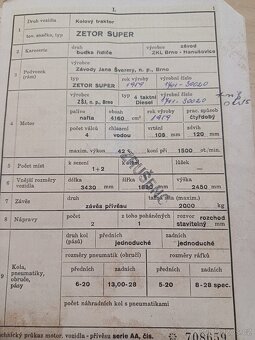 I.
1 Druh vozidla Kolový traktor
tov. značka, typ ZETOR SUPER
výrobce závod
2 Karoserie druh budka řidiče ZKL Brno - Hanušovice
výrobce
3 Podvozek (rám) Závody Jana Švermy, n. p., Brno
typ rok výroby výrobní číslo
ZETOR SUPER 30020
výrobce typ 4 taktní výrobní číslo
ZJŠ, n. p., Brno Diesel 30020
palivo obsah rok výroby prac. způsob
4 Motor nafta 4160 cm³ čtyřdobý
počet válců chlazení vrtání zdvih
4 vodou 105 mm 120 mm
maxim. výkon 42 koní při 1500 ot./min.
5 Počet míst k sezení 1+2 k stání lůžek
6 Vnější rozměry vozidla délka 3430 mm šířka mm výška 2450 mm
7 Závěs druh závěs přívěsu max. 2000 kg
8 Nápravy počet 2 z toho poháněných 1 rozvor rozchod stavitelný mm
druh kol (pásů) předních jednoduché zadních jednoduché
9 Kola, pneumatiky, obruče, pásy rozměry pneumatik (obručí) rozměry ráfků
předních zadních předních zadních
6-20 13,00-28 5-20 8-28 spec.
počet náhradních kol s pneumatikami
Technický průkaz motor. vozidla - přívěsu serie AA, čís. 708659
ZRUŠENO